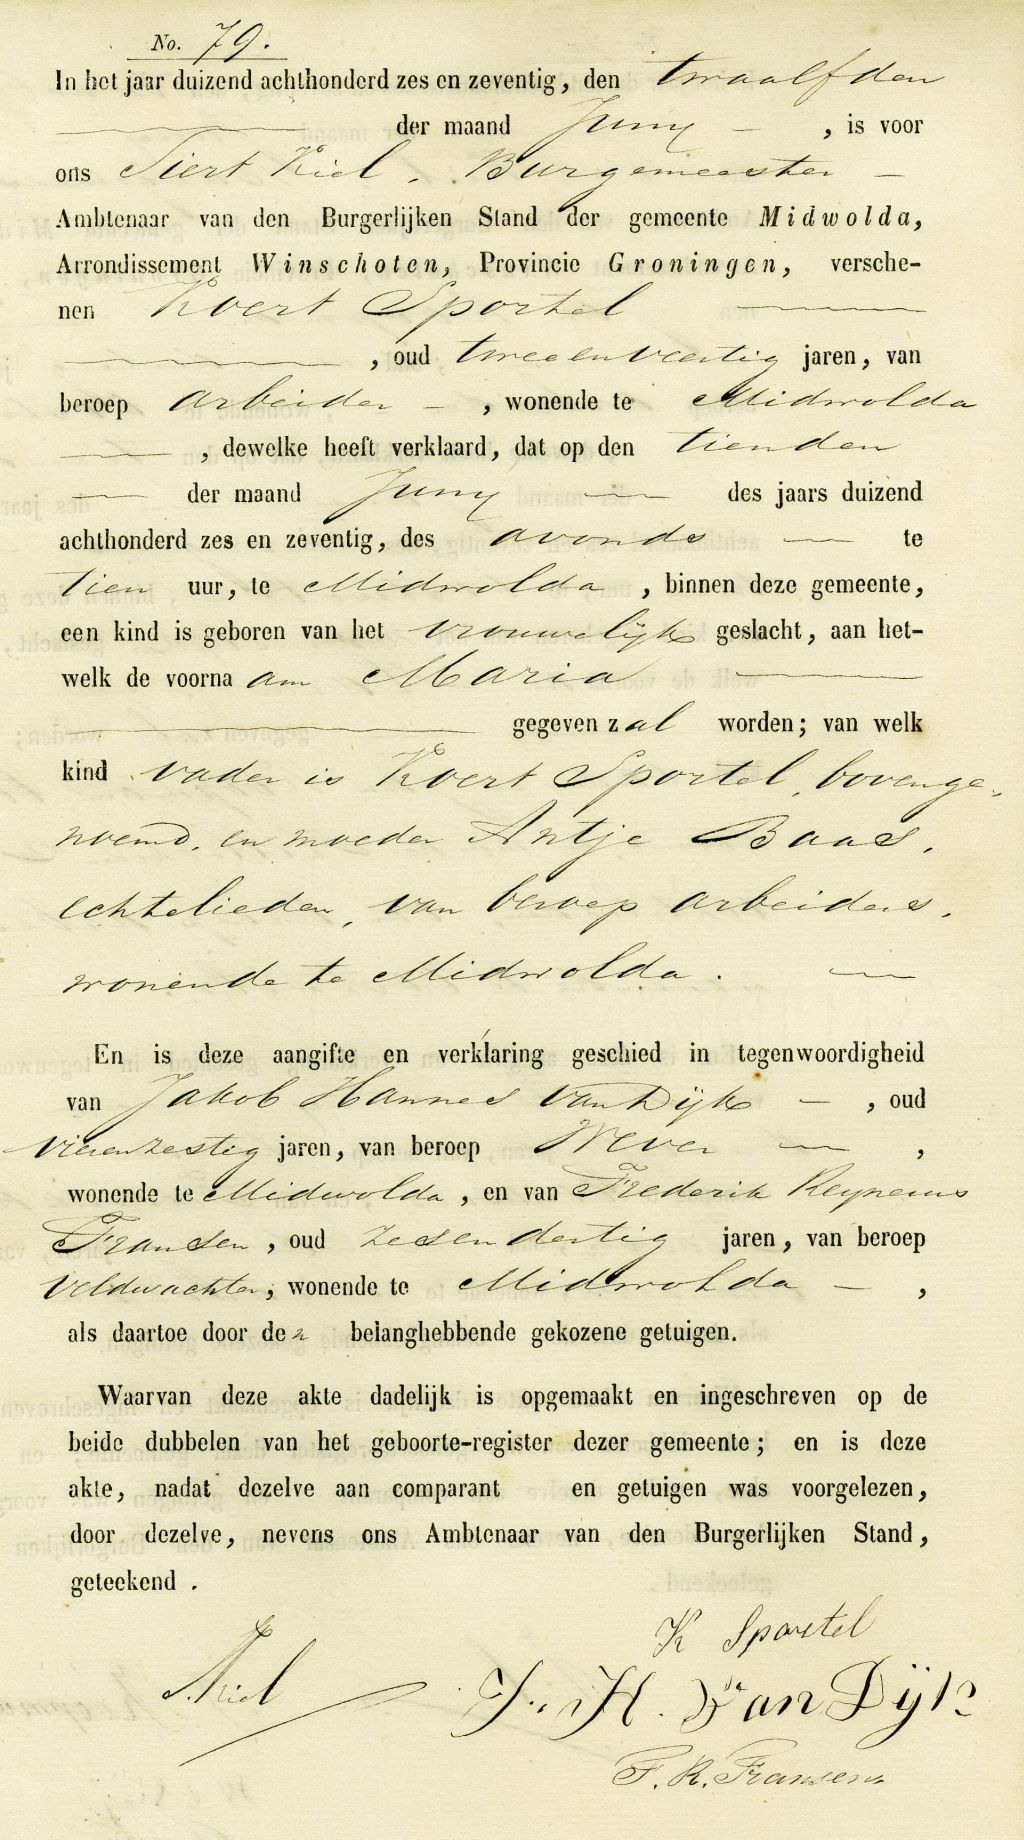 No. 79.
In het jaar duizend achthonderd zes en zeventig, den twaalfden
der maand Juny, is voor
ons Siert Kiel, Burgemeester
Ambtenaar van den Burgerlijken Stand der gemeente Midwolda,
Arrondissement Winschoten, Provincie Groningen, versche-
nen Koert Sportel
, oud tweeenveertig jaren, van
beroep arbeider, wonende te Midwolda
, dewelke heeft verklaard, dat op den tienden
der maand Juny des jaars duizend
achthonderd zes en zeventig, des avonds te
tien uur, te Midwolda, binnen deze gemeente,
een kind is geboren van het vrouwelijk geslacht, aan het-
welk de voornaam Maria
gegeven zal worden; van welk
kind vader is Koert Sportel, bovenge-
noemd, en moeder Antje Baas,
echtelieden, van beroep arbeiders,
wonende te Midwolda.
En is deze aangifte en verklaring geschied in tegenwoordigheid
van Jakob Hannes van Dijk, oud
vierenzestig jaren, van beroep Wever,
wonende te Midwolda, en van Frederik
Fransen, oud zesendertig jaren, van beroep
veldwachter, wonende te Midwolda,
als daartoe door den belanghebbende gekozene getuigen.
Waarvan deze akte dadelijk is opgemaakt en ingeschreven op de
beide dubbelen van het geboorte-register dezer gemeente; en is deze
akte, nadat dezelve aan comparant en getuigen was voorgelezen,
door dezelve, nevens ons Ambtenaar van den Burgerlijken Stand,
geteekend.
K Sportel
S. Kiel
J. H. Van Dijk
F. R. Fransen